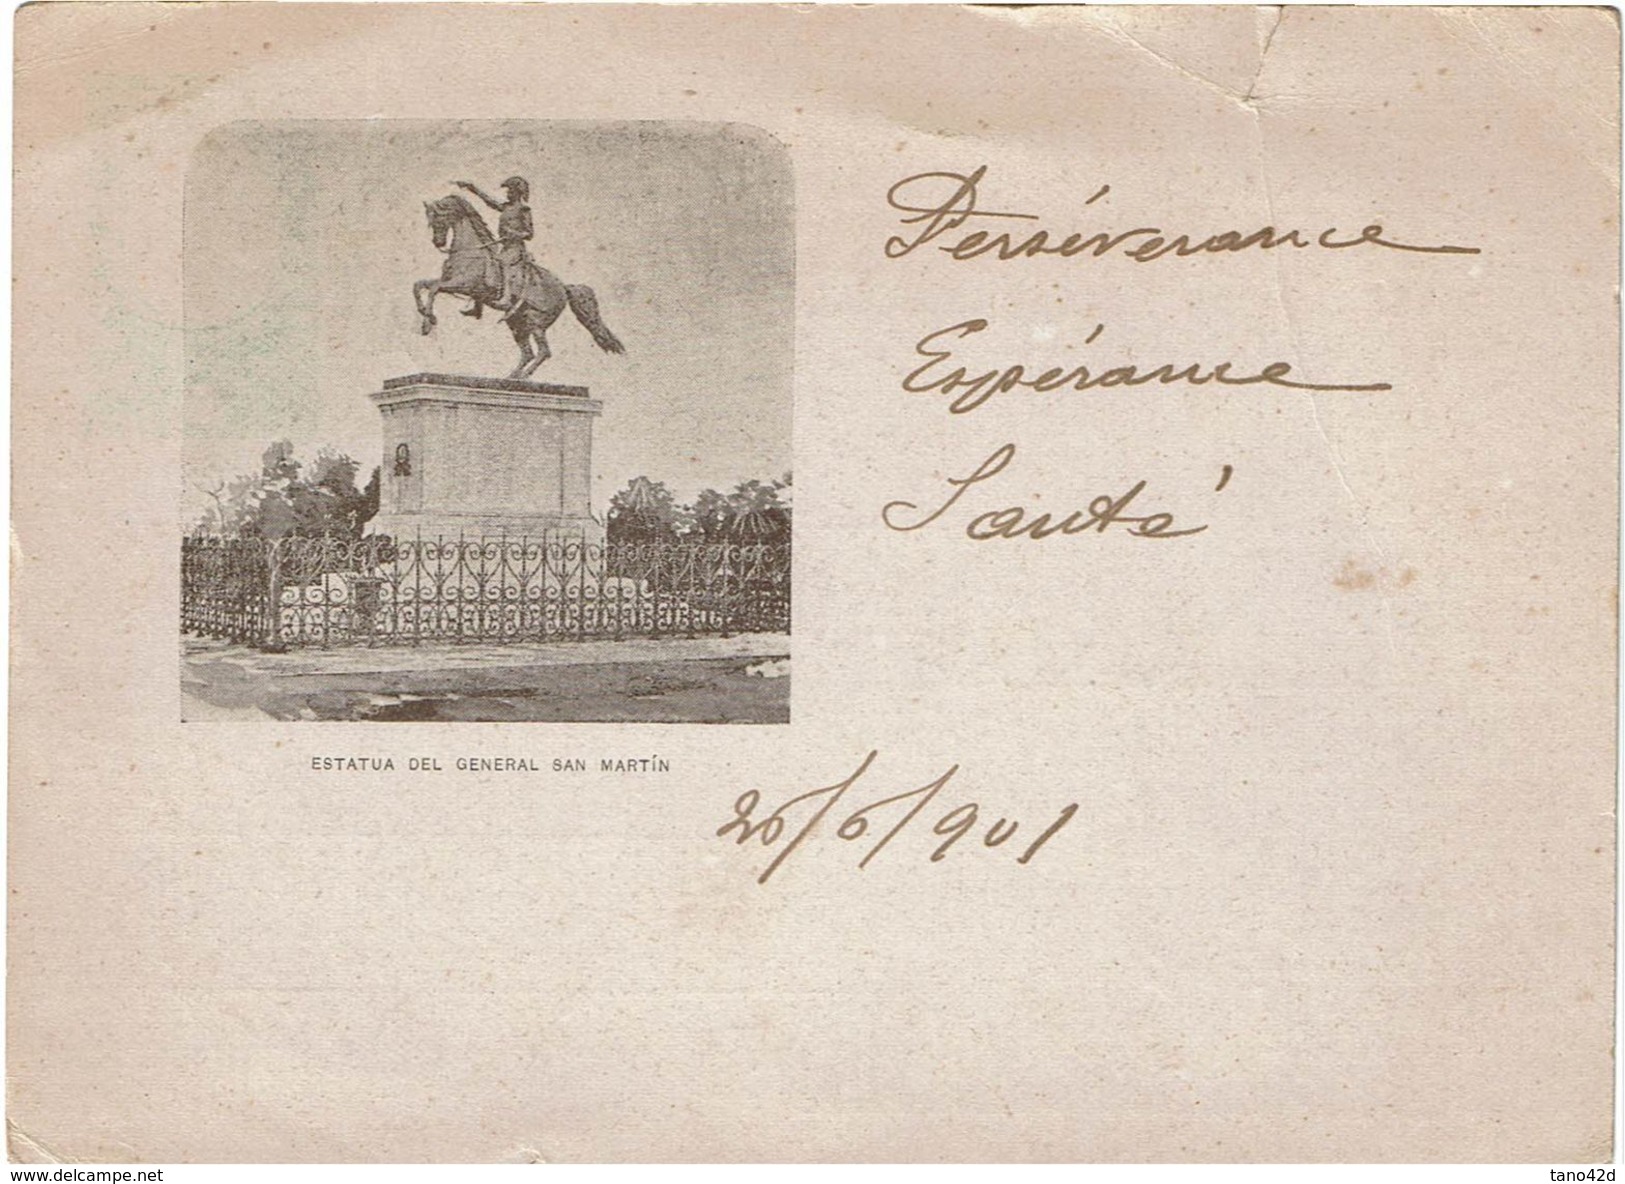 Persévérance
Espérance
Santé
ESTATUA DEL GENERAL SAN MARTÍN
26/6/901
www.delcampe.net
tano42d